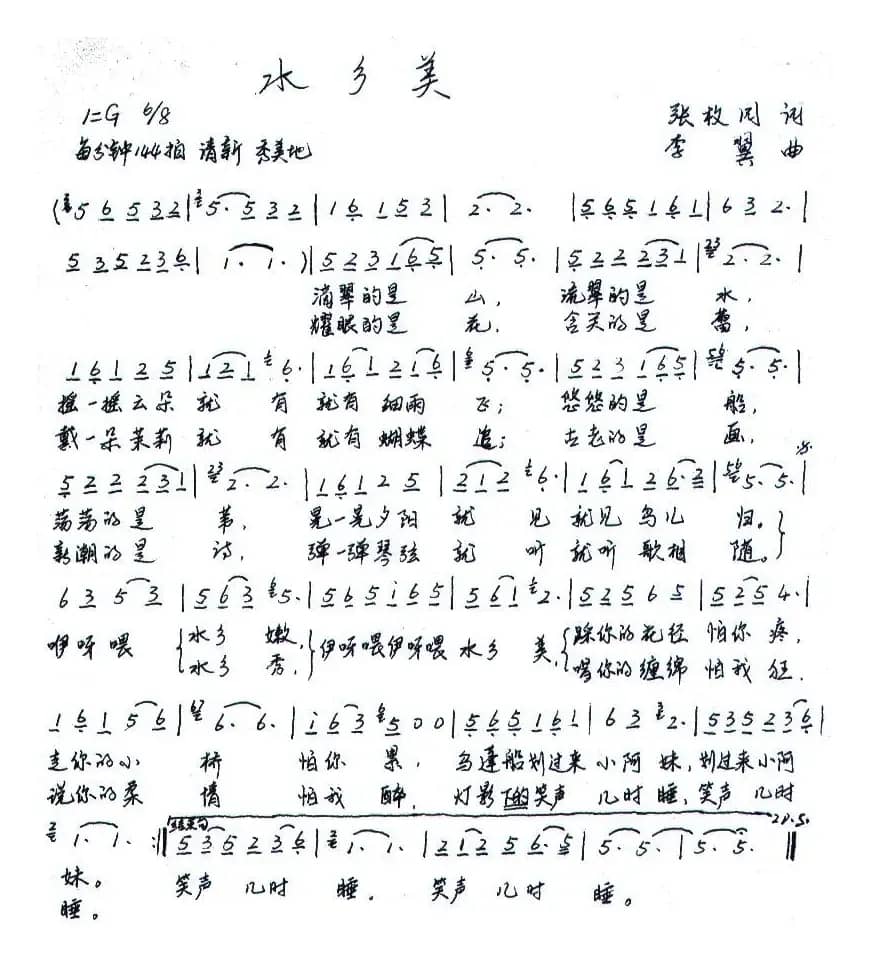 水乡美
1=G 6/8
张枚同 词
每分钟144拍 清新 秀美地
李翼 曲
(5 6 5 3 2 | 5· 5 3 2 | 1 6 1 5 3 | 2· 2· | 5 6 5 1 6 1 | 6 3 2· |
5 3 5 2 3 6 | 1· 1· ) | 5 2 3 1 6 5 | 5· 5· | 5 2 2 2 3 1 | 2· 2· |
滴翠的是 山， 流翠的是 水，
耀眼的是 花， 含笑的是 蕾，
1 6 1 2 5 | 1 2 1 6· | 1 6 1 2 1 6 | 5· 5· | 5 2 3 1 6 5 | 5· 5· |
摇一摇云朵 就 有 就有 细雨 飞； 悠悠的是 船，
戴一朵茉莉 就 有 就有 蝴蝶 追； 古老的是 画，
5 2 2 2 3 1 | 2· 2· | 1 6 1 2 5 | 2 1 2 6· | 1 6 1 2 6· 2 | 5· 5· |
荡荡的是 苇， 晃一晃夕阳 就 见 就见 鸟儿 归。
新潮的是 诗， 弹一弹琴弦 就 听 就听 歌相 随。
6 3 5 3 | 5 6 3 5· | 5 6 5 i 6 5 | 5 6 1 2· | 5 2 5 6 5 | 5 2 5 4· |
咿呀喂 水乡 嫩， 伊呀喂伊呀喂 水乡 美， 踩你的花径 怕你 疼，
水乡 秀， 喝你的缠绵 怕我 狂，
1 6 1 5 6 | 6· 6· | i 6 3 5 0 0 | 5 6 5 1 6 1 | 6 3 2· | 5 3 5 2 3 6 |
走你的小 桥 怕你 累， 乌蓬船划过来 小阿 妹，划过来小阿
说你的柔 情 怕我 醉， 灯影下的笑声 几时 睡，笑声 几时
1· 1· :‖ 5 3 5 2 3 6 | 1· 1· | 2 1 2 5 6· 5 | 5· 5· | 5· 5· ‖
结束句
D.S.
妹。 笑声 几时 睡， 笑声 几时 睡。
睡。